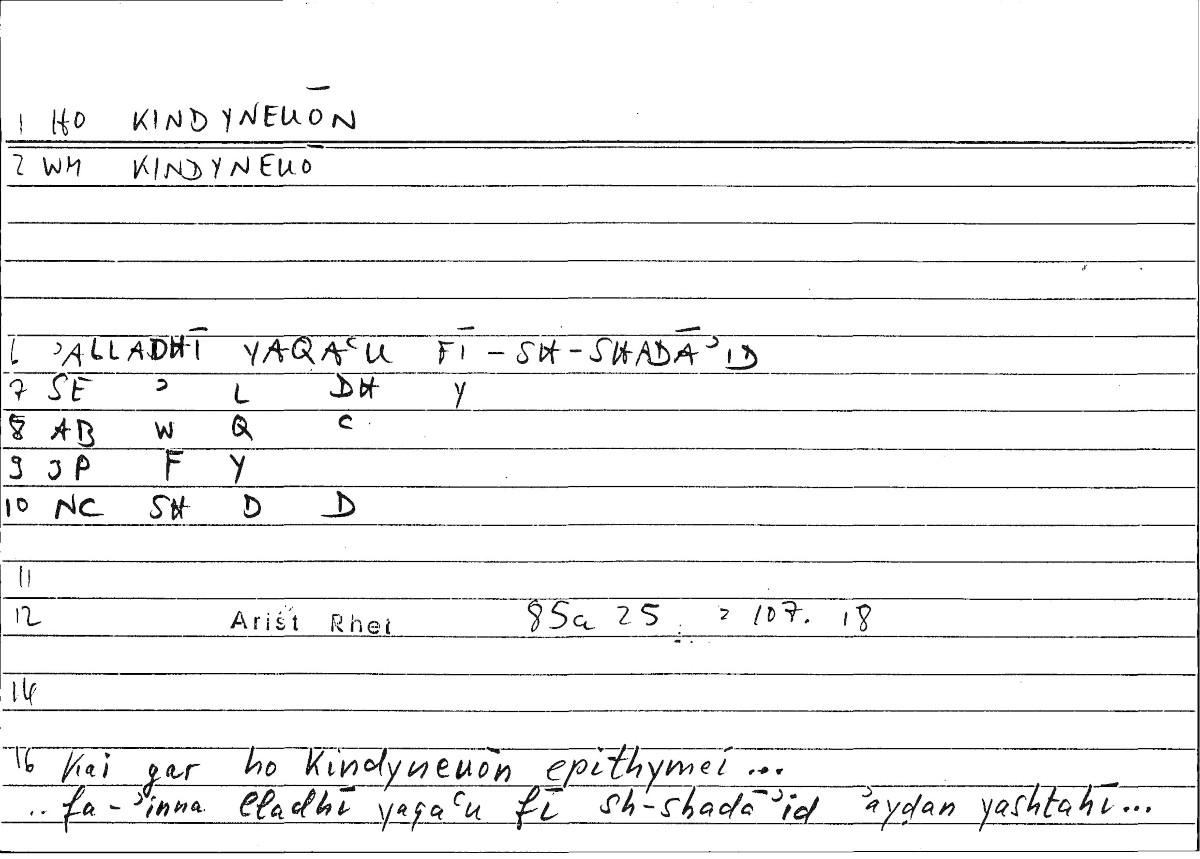 1 HO KINDYNEUŌN
2 WM KINDYNEUŌ
6 ʾALLADHĪ YAQAʿU FĪ - SH - SHADĀʾID
7 SE ʾ L DH Y
8 AB W Q ʿ
9 JP F Y
10 NC SH D D
11
12 Arist Rhet 85a 25 2 107. 18
14
16 Kai gar ho Kindyneuōn epithymei ...
.. fa-ʾinna lladhī yaqaʿu fī sh-shadāʾid ʾayḍan yashtahī...